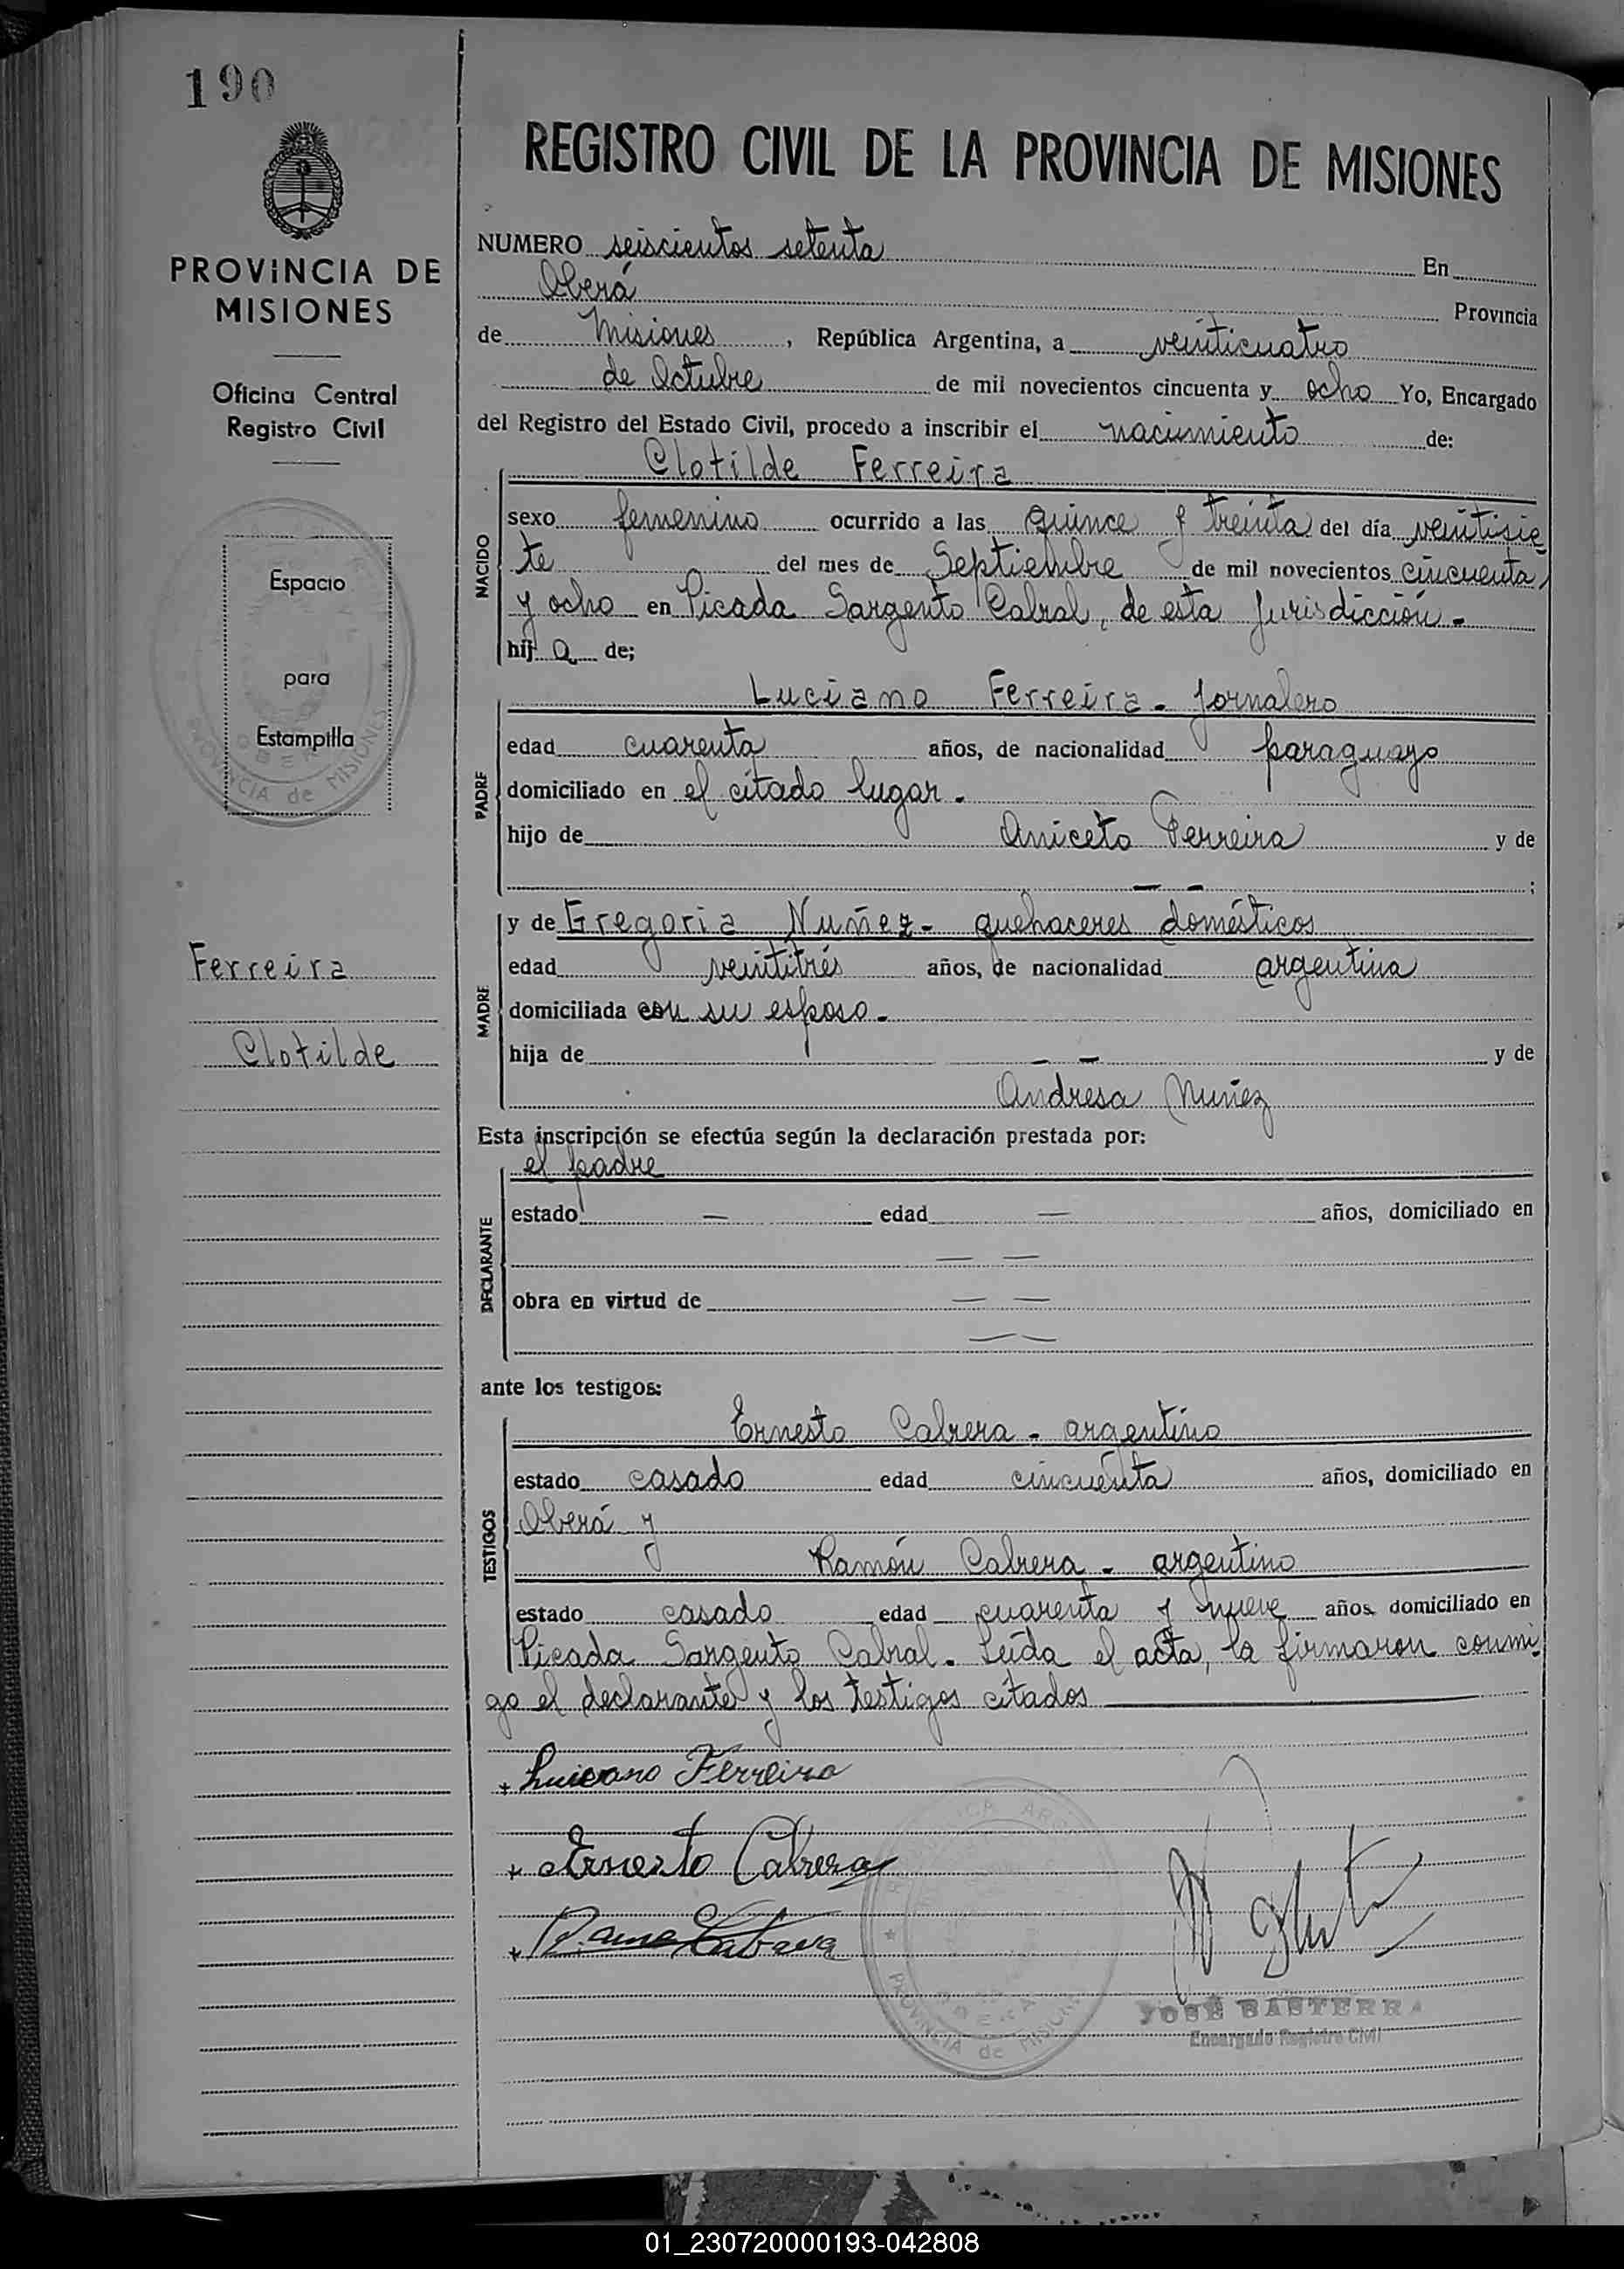 190
PROVINCIA DE
MISIONES
Oficina Central
Registro Civil
Espacio
para
Estampilla
PROVINCIA de MISIONES
Ferreira
Clotilde
REGISTRO CIVIL DE LA PROVINCIA DE MISIONES
NUMERO seiscientos setenta En
Oberá Provincia
de Misiones, República Argentina, a veinticuatro
de Octubre de mil novecientos cincuenta y ocho Yo, Encargado
del Registro del Estado Civil, procedo a inscribir el nacimiento de:
Clotilde Ferreira
NACIDO
sexo femenino ocurrido a las quince y treinta del día veintisie
te del mes de Septiembre de mil novecientos cincuenta
y ocho en Picada Sargento Cabral, de esta Jurisdicción.-
hij a de;
PADRE
Luciano Ferreira - Jornalero
edad cuarenta años, de nacionalidad paraguayo
domiciliado en el citado lugar.
hijo de Aniceto Ferreira y de
— — ;
MADRE
y de Gregoria Nuñez - quehaceres domésticos
edad veintitrés años, de nacionalidad argentina
domiciliada con su esposo.
hija de — — y de
Andresa Nuñez
Esta inscripción se efectúa según la declaración prestada por:
el padre
DECLARANTE
estado — edad — años, domiciliado en
— —
obra en virtud de — —
— —
ante los testigos:
TESTIGOS
Ernesto Cabrera - argentino
estado casado edad cincuenta años, domiciliado en
Oberá y
Ramón Cabrera - argentino
estado casado edad cuarenta y nueve años domiciliado en
Picada Sargento Cabral. Leída el acta, la firmaron conmi
go el declarante y los testigos citados
+ Luicano Ferreira
+ Ernesto Cabrera
+ Ramon Cabrera
PROVINCIA de MISIONES
JOSÉ BASTERRA
Encargado Registro Civil
01_230720000193-042808